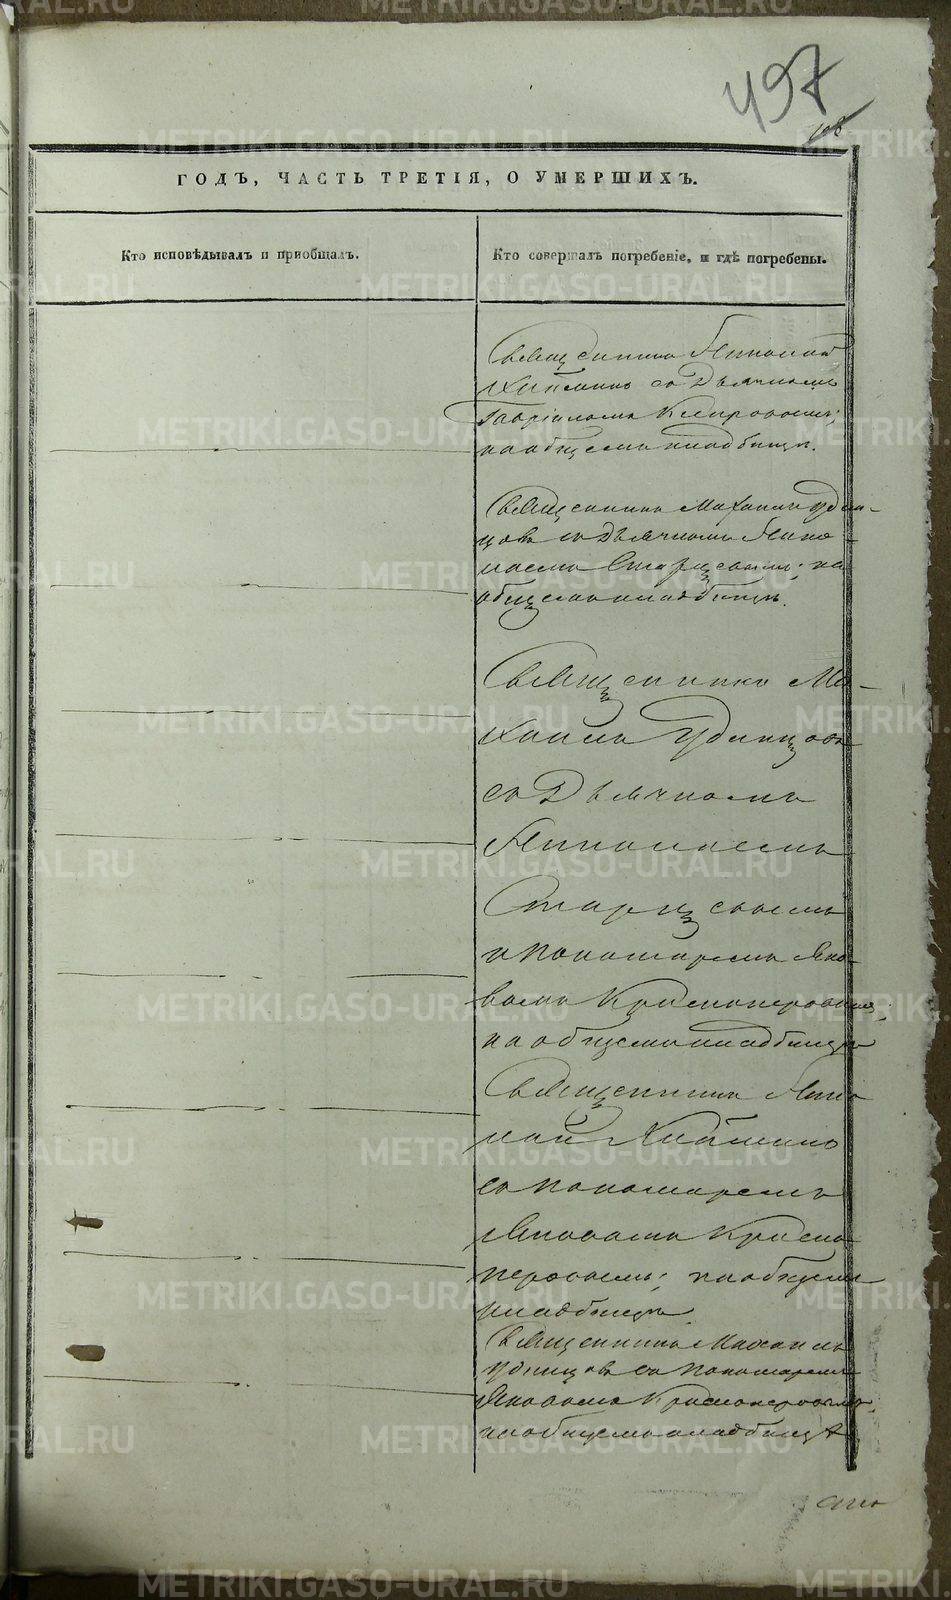 497
108
ГОДЪ, ЧАСТЬ ТРЕТІЯ, О УМЕРШИХЪ.
Кто исповѣдывалъ и пріобщалъ.
Кто совершалъ погребеніе, и гдѣ погребены.
Священникъ Николай
съ Дьячкомъ
Гавріиломъ Кипровомъ;
на общемъ кладбищѣ.
Священникъ Михаилъ Удин-
цовъ съ Дьячкомъ Нико-
лаемъ Старцевымъ; на
общемъ кладбищѣ.
Священникъ Ми-
хаилъ Удинцовъ
съ Дьячкомъ
Николаемъ
Старцевымъ
и Пономаремъ Яко-
вомъ Красноперовымъ;
на общемъ кладбищѣ
Священникъ Нико-
лай
съ Пономаремъ
Яковомъ Красно-
перовымъ; на общемъ
кладбищѣ.
Священникъ Михаилъ
Удинцовъ съ Пономаремъ
Яковомъ Красноперовымъ,
на общемъ кладбищѣ
METRIKI.GASO-URAL.RU